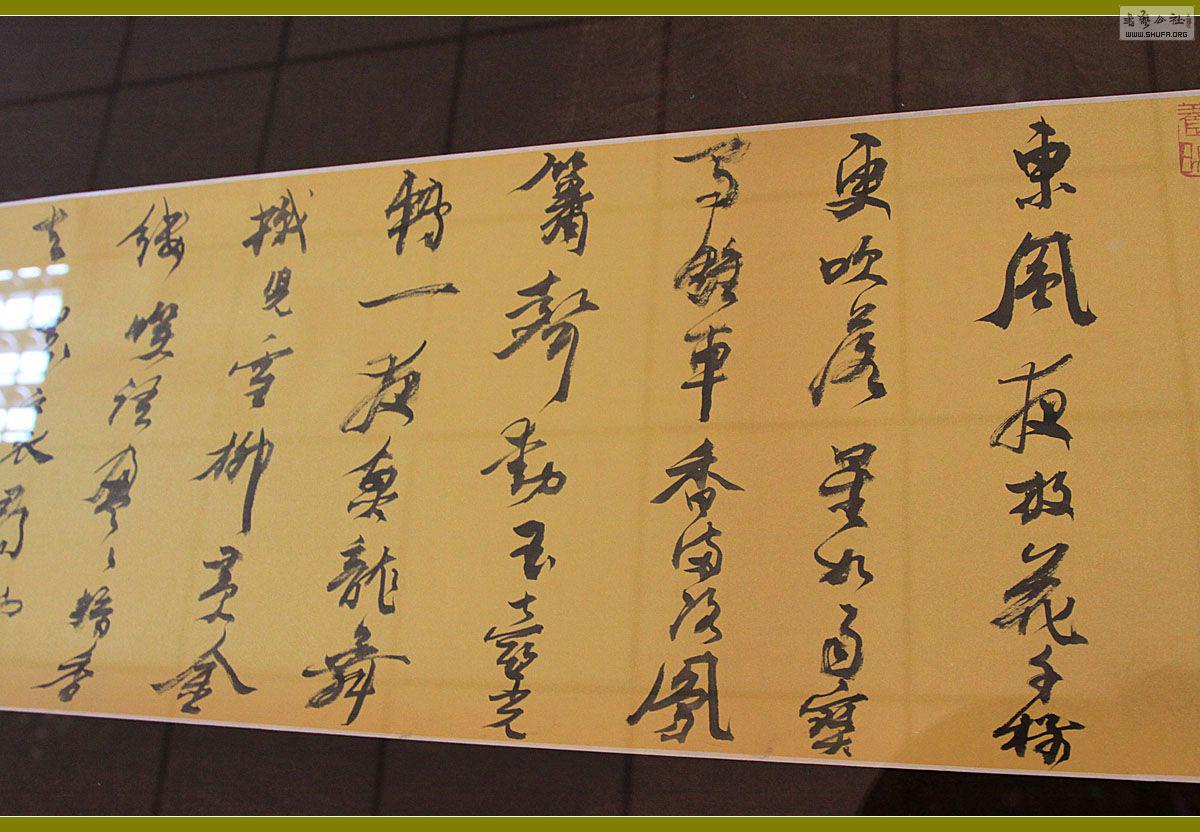 書藝公社
WWW.SHUFA.ORG
東風夜放花千樹
更吹落星如雨寶
馬雕車香滿路鳳
簫聲動玉壺光
轉一夜魚龍舞
蛾兒雪柳黃金
縷咲語盈〻暗香
去眾裏尋他